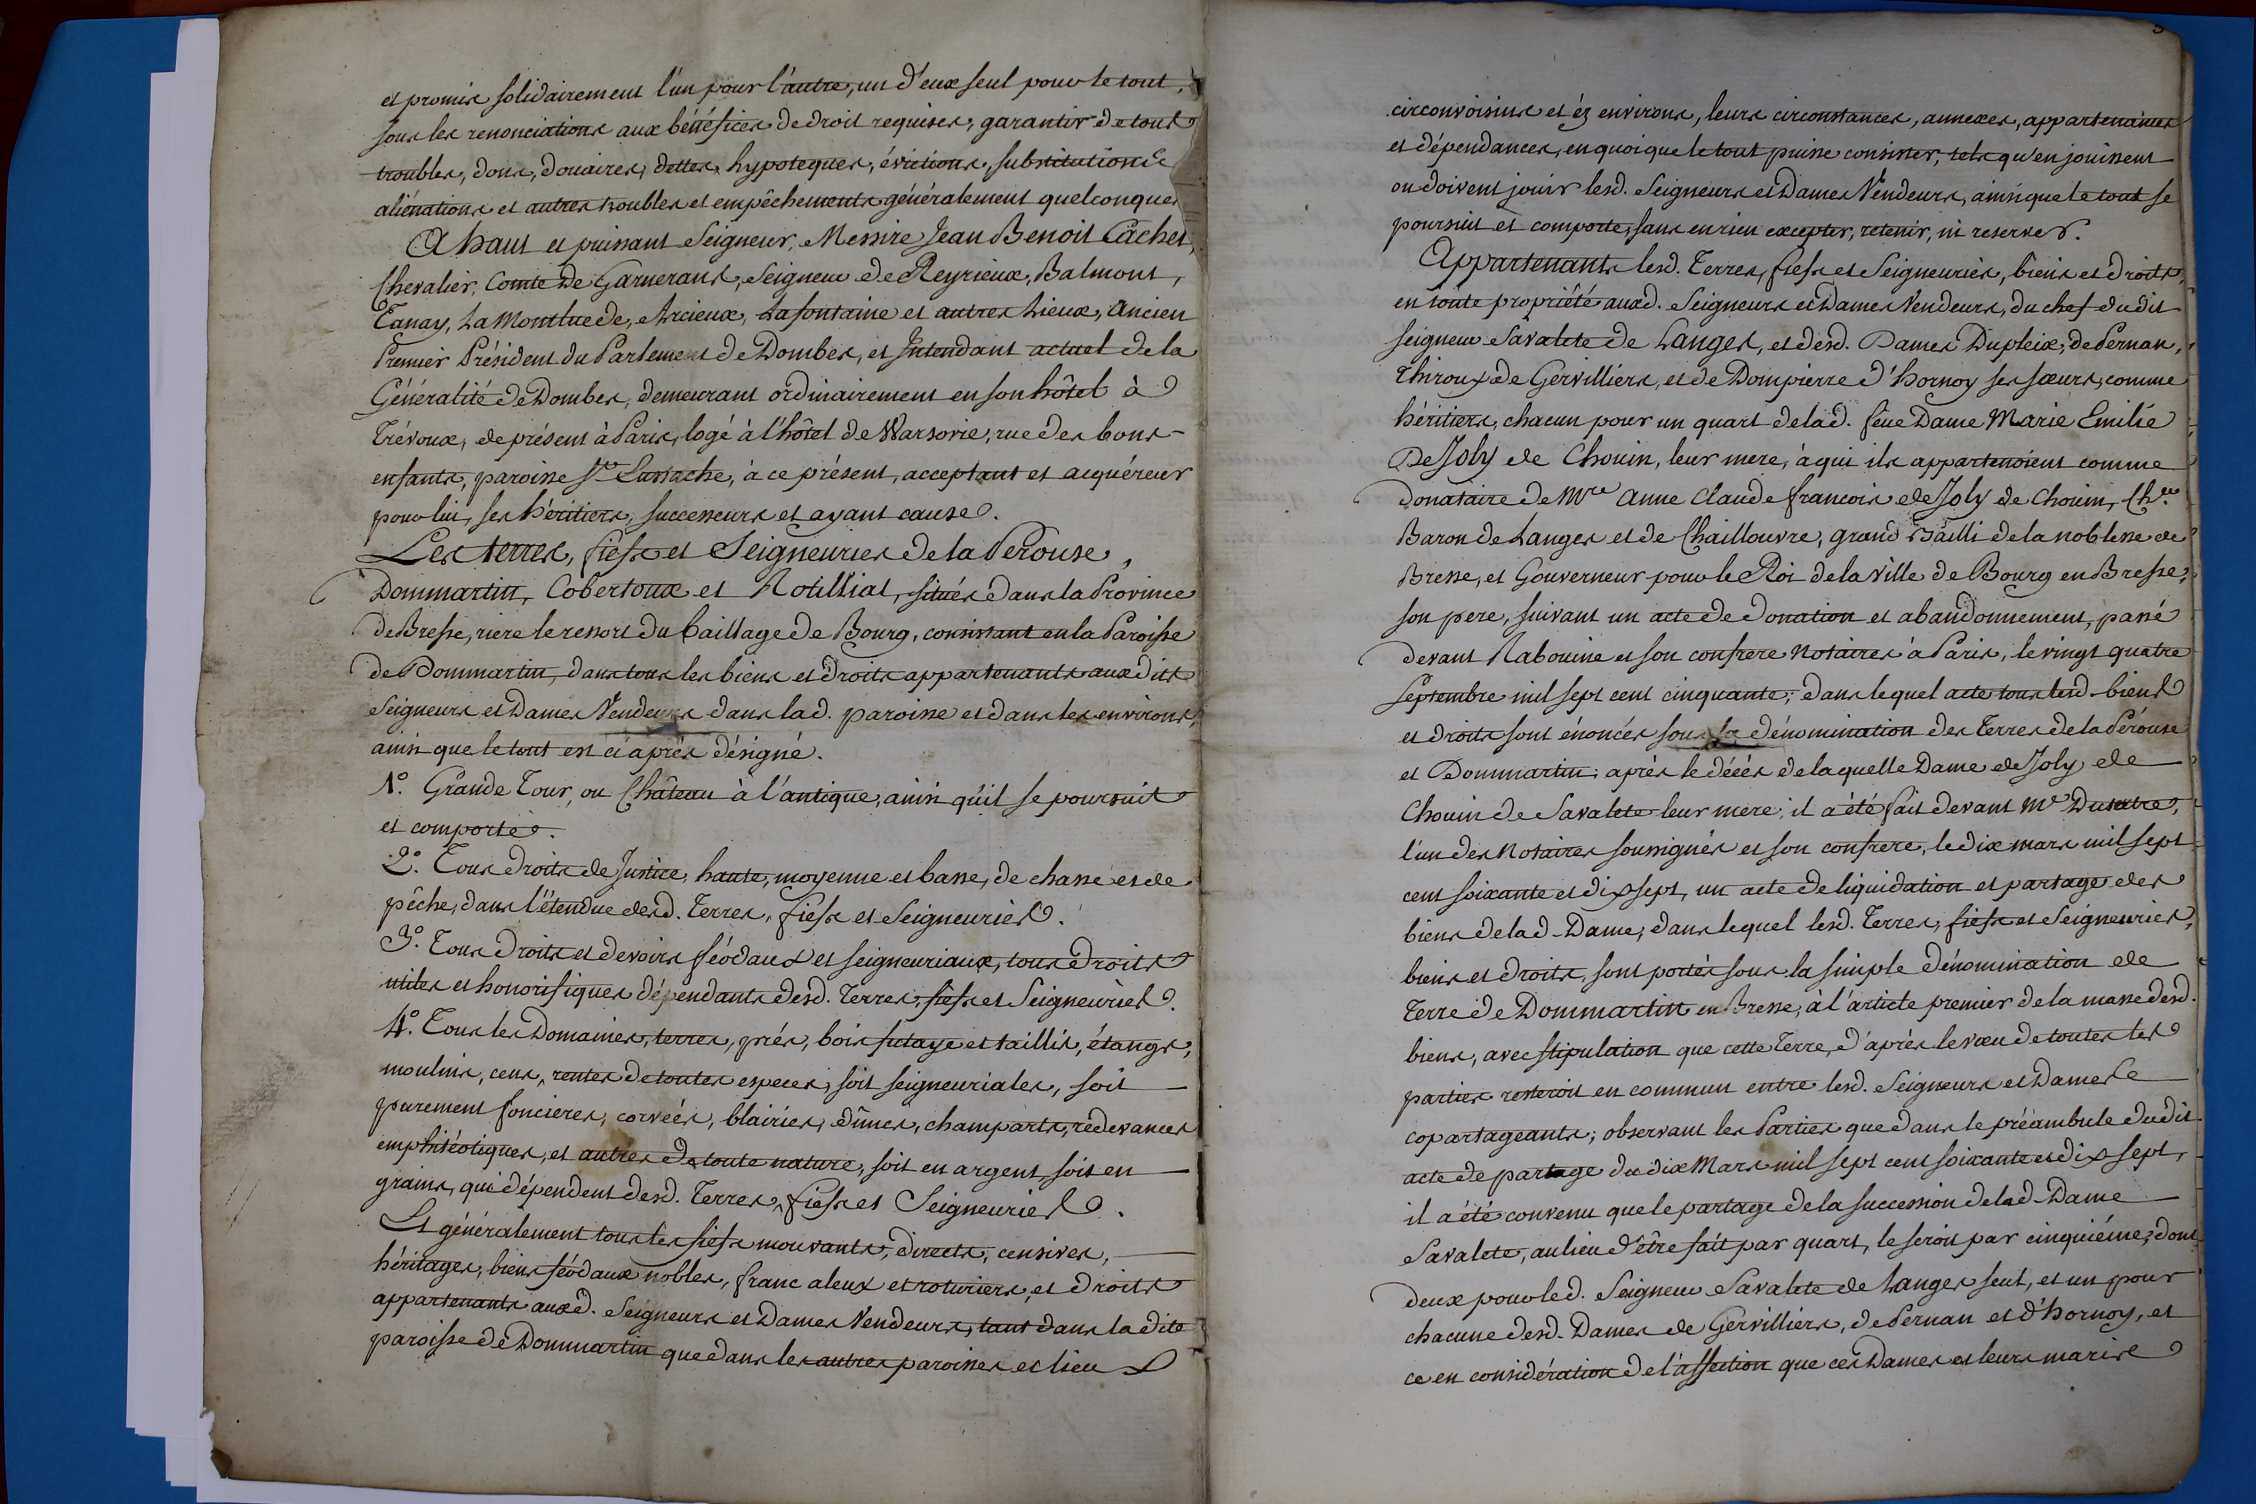 et promis solidairement l'un pour l'autre, un d'eux seul pour le tout,
sous les renonciations aux bénéfices de droit requises, garantir de tous
troubles, dons, douaires, dettes, hypoteques, évictions, substitutions
aliénations et autres troubles et empêchements généralement quelconques
A haut et puissant Seigneur, Messire Jean Benoit Cachet,
Chevalier, Comte de Garnerans, Seigneur de Reyrieux, Balmont,
Tanay, La Montluede, Arcieux, Lafontaine et autres Lieux, Ancien
Premier Président du Parlement de Dombes, et Intendant actuel de la
Généralité de Dombes, demeurant ordinairement en son hôtel à
Trévoux, de présent à Paris, logé à l'hôtel de Warsovie, rue des bons-
enfants, paroisse St. Eustache, à ce présent, acceptant et acquéreur
pour lui, ses héritiers, successeurs et ayant cause.
Les terres, fiefs et Seigneuries de la Pérouse,
Dommartin, Cobertoux et Rotilliat, situés dans la Province
de Bresse, riere le ressort du bailliage de Bourg, consistant en la Paroisse
de Dommartin, dans tous les biens et droits appartenants aux dits
Seigneurs et Dames Vendeurs dans lad. paroisse et dans les environs,
ainsi que le tout est ci après désigné.
1°. Grande Tour, ou Château à l'antique, ainsi qu'il se poursuit
et comporte.
2°. Tous droits de Justice, haute, moyenne et basse, de chasse et de
pêche, dans l'étendue desd. Terres, fiefs et Seigneuries.
3°. Tous droits et devoirs féodaux et seigneuriaux, tous droits
utiles et honorifiques dépendants desd. Terres, fiefs et Seigneuries.
4°. Tous les Domaines, terres, prés, bois futaye et taillis, étangs,
moulins, cens, rentes de toutes especes, soit seigneuriales, soit
purement foncieres, corvées, blairies, dîmes, champarts, redevances
emphitéotiques, et autres de toute nature, soit en argent, soit en
grains, qui dépendent desd. Terres, fiefs et Seigneuries.
Et généralement tous les fiefs mouvants, directs, censives,
héritages, biens féodaux nobles, franc aleux et roturiers, et droits
appartenants auxd. Seigneurs et Dames Vendeurs, tant dans la dite
paroisse de Dommartin que dans les autres paroisses et lieux
circonvoisins et éz environs, leurs circonstances, annexes, appartenances
et dépendances, en quoi que le tout puisse consister, tels qu'en jouissent
ou doivent jouir lesd. Seigneurs et Dames Vendeurs, ainsi que le tout se
poursuit et comporte, sans en rien excepter, retenir, ni reserver.
Appartenants lesd. Terres, fiefs et Seigneuries, biens et droits,
en toute propriété auxd. Seigneurs et Dames Vendeurs, du chef dudit
seigneur Savalete de Langes, et desd. Dames Dupleix, de Pernan,
Thiroux de Gervilliers, et de Dompierre d'hornoy ses sœurs, comme
héritiers, chacun pour un quart de lad. feue Dame Marie Emilie
De Joly de Chouin, leur mere, à qui ils appartenoient comme
donataire de Mre Anne Claude francois de Joly de Chouin, Cher.
Baron de Langes et de Chaillouvre, grand Bailli de la noblesse de
Bresse, et Gouverneur pour le Roi de la Ville de Bourg en Bresse,
son pere, suivant un acte de donation et abandonnement, passé
devant Rabouine et son confrere Notaires à Paris, le vingt quatre
Septembre mil sept cent cinquante, dans lequel acte tous lesd. biens
et droits sont énoncés sous la dénomination des Terres de la Pérouse
et Dommartin; après le décès de laquelle Dame de Joly de
Chouin de Savalete leur mere, il a été fait devant Me Dutertre,
l'un des Notaires soussignés et son confrere, le dix mars mil sept
cent soixante et dix sept, un acte de liquidation et partage des
biens de lad. Dame, dans lequel lesd. Terres, fiefs et Seigneuries,
biens et droits, sont portés sous la simple dénomination de
Terre de Dommartin en Bresse, à l'article premier de la masse desd.
biens, avec stipulation que cette Terre, d'après le vœu de toutes les
parties resteroit en commun entre lesd. Seigneurs et Dames
copartageants; observant les Parties que dans le préambule dudit
acte de partage du dix Mars mil sept cent soixante et dix sept,
il a été convenu que le partage de la succession de lad. Dame
Savalete, au lieu d'être fait par quart, le seroit par cinquiéme; dont
deux pour led. Seigneur Savalete de Langes seul, et un pour
chacune desd. Dames de Gervilliers, de Pernan et d'hornoy, et
ce en considération de l'affection que ces Dames et leurs maris